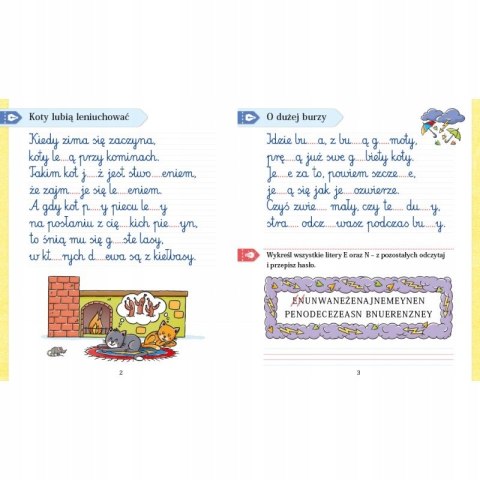 Koty lubią leniuchować
Kiedy zima się zaczyna,
koty le....ą przy kominach.
Takim kot j....ż jest stwo....eniem,
że zajm....je się le....eniem.
A gdy kot p....y piecu le....y
na posłaniu z cię....kich pie....yn,
to śnią mu się g....ste lasy,
w kt....rych d....ewa są z kiełbasy.
2
O dużej burzy
Idzie bu....a, z bu....ą g....moty,
prę....ą już swe g....biety koty.
Je....e za to, powiem szcze....e,
je....ą się jak je....ozwierze.
Czyś zwie.... mały, czy te.... du....y,
stra.... odcz....wasz podczas bu....y.
Wykreśl wszystkie litery E oraz N – z pozostałych odczytaj
i przepisz hasło.
ENUNWANEŻENAJNEMEYNEN
PENODECEZEASN BNUERENZNEY
3